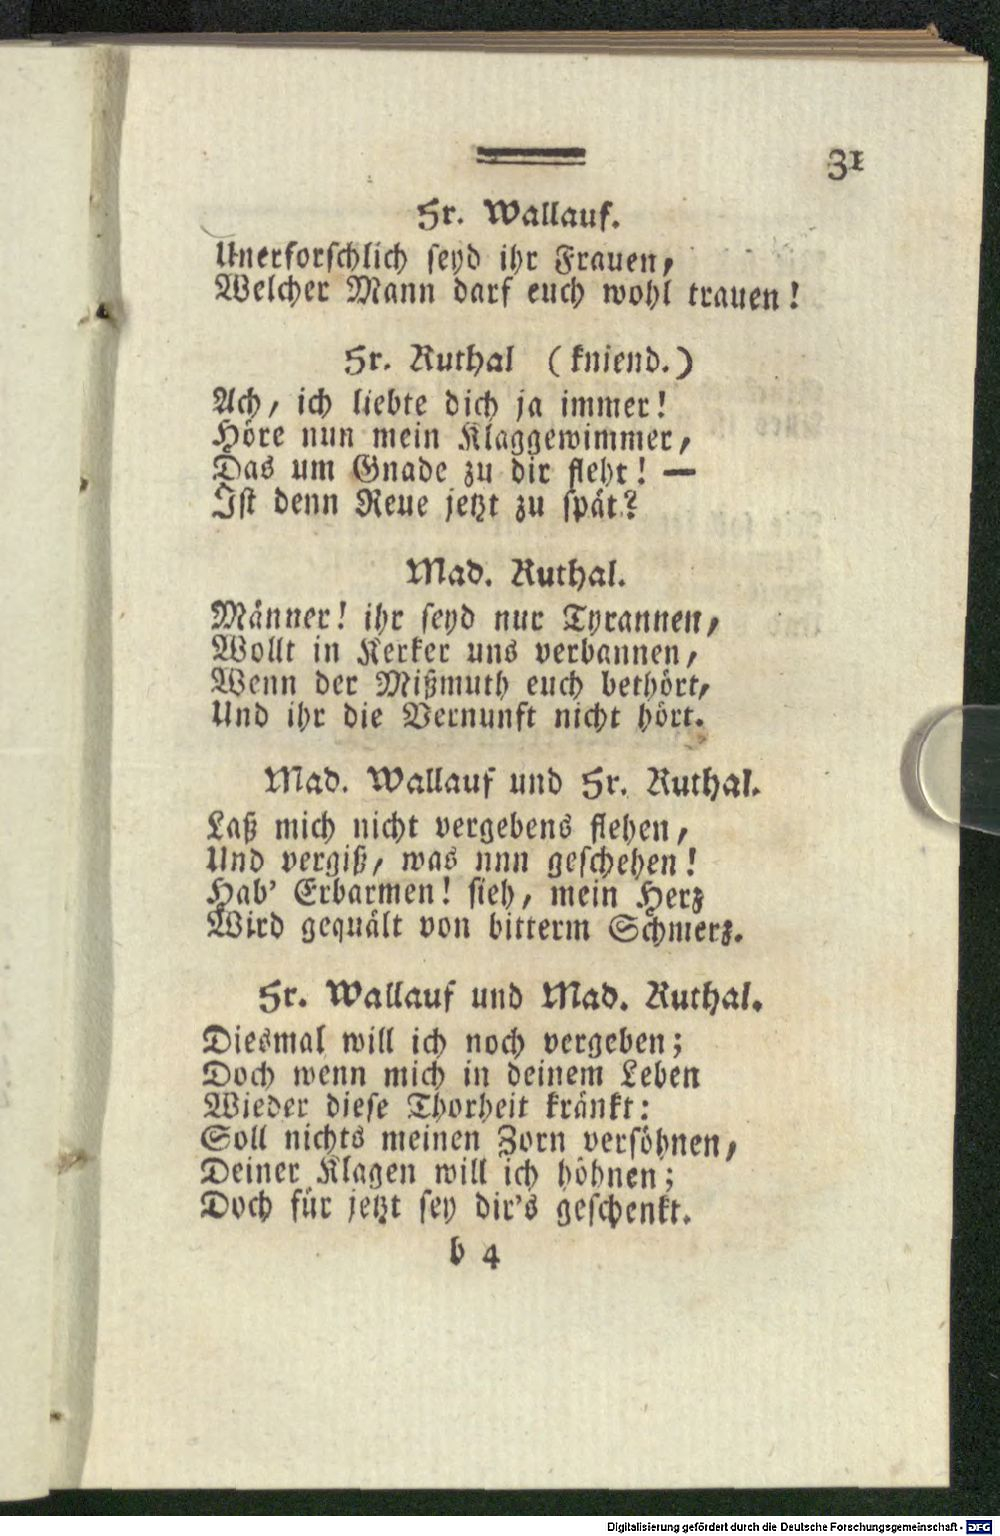 31
Hr. Wallauf.
Unerforschlich seyd ihr Frauen,
Welcher Mann darf euch wohl trauen!
Hr. Ruthal (kniend.)
Ach, ich liebte dich ja immer!
Höre nun mein Klaggewimmer,
Das um Gnade zu dir fleht! —
Ist denn Reue jetzt zu spät?
Mad. Ruthal.
Männer! ihr seyd nur Tyrannen,
Wollt in Kerker uns verbannen,
Wenn der Mißmuth euch bethört,
Und ihr die Vernunft nicht hört.
Mad. Wallauf und Hr. Ruthal.
Laß mich nicht vergebens flehen,
Und vergiß, was nnn geschehen!
Hab' Erbarmen! sieh, mein Herz
Wird gequält von bitterm Schmerz.
Hr. Wallauf und Mad. Ruthal.
Diesmal will ich noch vergeben;
Doch wenn mich in deinem Leben
Wieder diese Thorheit kränkt:
Soll nichts meinen Zorn versöhnen,
Deiner Klagen will ich höhnen;
Doch für jetzt sey dir's geschenkt.
b 4
Digitalisierung gefördert durch die Deutsche Forschungsgemeinschaft - DFG